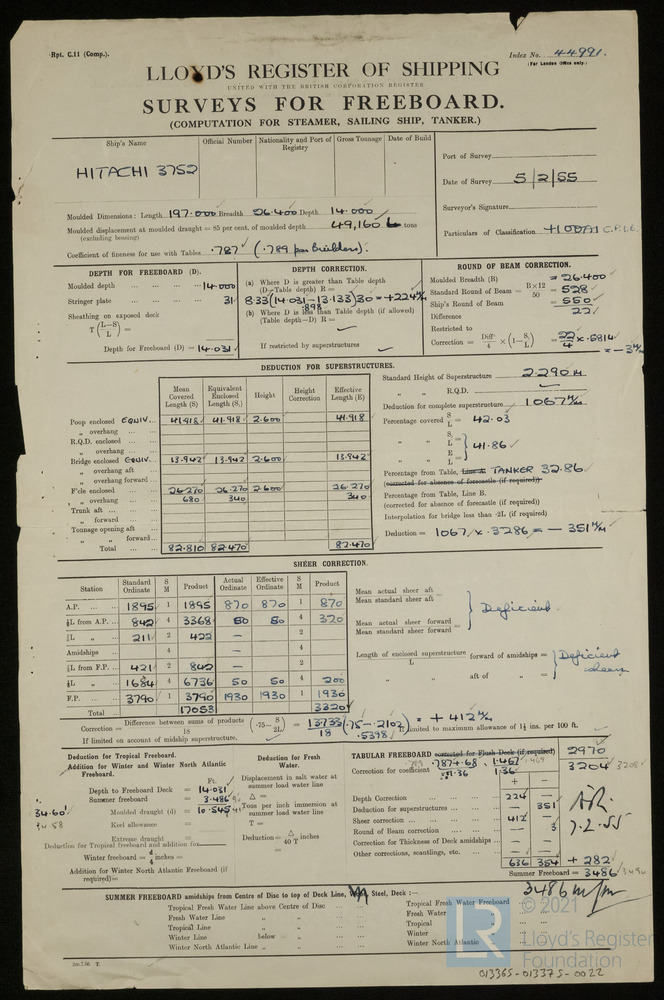 Rpt. C.11 (Comp.).
Index No. 44991.
(For London Office only.)
LLOYD'S REGISTER OF SHIPPING
UNITED WITH THE BRITISH CORPORATION REGISTER
SURVEYS FOR FREEBOARD.
(COMPUTATION FOR STEAMER, SAILING SHIP, TANKER.)
Ship's Name
Official Number
Nationality and Port of Registry
Gross Tonnage
Date of Build
HITACHI 3752
Port of Survey
Date of Survey 5/2/55
Surveyor's Signature
Particulars of Classification +100A1 C.P.L.
Moulded Dimensions: Length 197.000 Breadth 26.400 Depth 14.000
Moulded displacement at moulded draught = 85 per cent. of moulded depth 49,160 tons
(excluding bossing)
Coefficient of fineness for use with Tables .787 (.789 per builders).
DEPTH FOR FREEBOARD (D).
Moulded depth 14.000
Stringer plate 31
Sheathing on exposed deck
T (L-S / L) =
Depth for Freeboard (D) = 14.031
DEPTH CORRECTION.
(a) Where D is greater than Table depth
(D-Table depth) R =
8.33(14.031-13.133)30 = +224 m/m
.898
(b) Where D is less than Table depth (if allowed)
(Table depth-D) R =
If restricted by superstructures
ROUND OF BEAM CORRECTION.
Moulded Breadth (B) = 26.400
Standard Round of Beam = B×12 / 50 = 528
Ship's Round of Beam = 550
Difference 22
Restricted to
Correction = Diff. / 4 × (1-S₁ / L) = 22/4 × .5814
= -3 m/m
DEDUCTION FOR SUPERSTRUCTURES.
Mean Covered Length (S)
Equivalent Enclosed Length (S₁)
Height
Height Correction
Effective Length (E)
Poop enclosed EQUIV. 41.918 41.918 2.600 41.918
„ overhang
R.Q.D. enclosed
„ overhang
Bridge enclosed EQUIV. 13.942 13.942 2.600 13.942
„ overhang aft
„ overhang forward
F'cle enclosed 26.270 26.270 2.600 26.270
„ overhang 680 340 340
Trunk aft
„ forward
Tonnage opening aft
„ „ forward
Total 82.810 82.470 82.470
Standard Height of Superstructure 2.290 M
„ „ R.Q.D.
Deduction for complete superstructure 1067 m/m
Percentage covered S/L = 42.03
„ „ S₁/L =
„ „ E/L = 41.86
Percentage from Table, Line A TANKER 32.86
(corrected for absence of forecastle (if required))
Percentage from Table, Line B.
(corrected for absence of forecastle (if required))
Interpolation for bridge less than ·2L (if required)
Deduction = 1067 × .3286 = - 351 m/m
SHEER CORRECTION.
Station
Standard Ordinate
S M
Product
Actual Ordinate
Effective Ordinate
S M
Product
A.P. 1895 1 1895 870 870 1 870
⅙L from A.P. 842 4 3368 80 80 4 320
⅓L „ 211 2 422 - 2
Amidships 4 - 4
⅓L from F.P. 421 2 842 - 2
⅙L „ 1684 4 6736 50 50 4 200
F.P. 3790 1 3790 1930 1930 1 1930
Total 17053 3320
Mean actual sheer aft
Mean standard sheer aft =
Deficient
Mean actual sheer forward
Mean standard sheer forward =
Length of enclosed superstructure / L forward of amidships =
„ „ aft of „ =
Deficient sheer
Correction = Difference between sums of products / 18 (·75- S/2L) = 13733/18 (.75-.2102) = + 412 m/m
.5398
If limited on account of midship superstructure.
If limited to maximum allowance of 1½ ins. per 100 ft.
Deduction for Tropical Freeboard.
Addition for Winter and Winter North Atlantic Freeboard.
Ft.
Depth to Freeboard Deck = 14.031
Summer freeboard = 3.486
Moulded draught (d) = 10.545
34.60
34.58
Keel allowance =
Extreme draught =
Deduction for Tropical freeboard and addition for
Winter freeboard = d/4 = inches =
Addition for Winter North Atlantic Freeboard (if required) =
Deduction for Fresh Water.
Displacement in salt water at summer load water line
Δ =
Tons per inch immersion at summer load water line
T =
Deduction = Δ / 40 T inches
=
TABULAR FREEBOARD corrected for Flush Deck (if required) 2970
Correction for coefficient .787+.68 / 1.36 1.467 / 1.36 3204 3208
+ -
Depth Correction 224
Deduction for superstructures 351
Sheer correction 412
Round of Beam correction 3
Correction for Thickness of Deck amidships
Other corrections, scantlings, etc.
636 354 + 282
7.2.55
Summer Freeboard = 3486
3486 m/m
SUMMER FREEBOARD amidships from Centre of Disc to top of Deck Line, Steel, Deck :—
Tropical Fresh Water Line above Centre of Disc
Fresh Water Line „ „
Tropical Line „ „
Winter Line below „
Winter North Atlantic Line „ „
Tropical Fresh Water Freeboard
Fresh Water „
Tropical „
Winter „
Winter North Atlantic „
LR
© 2021
Lloyd's Register
Foundation
013365-013375-0022